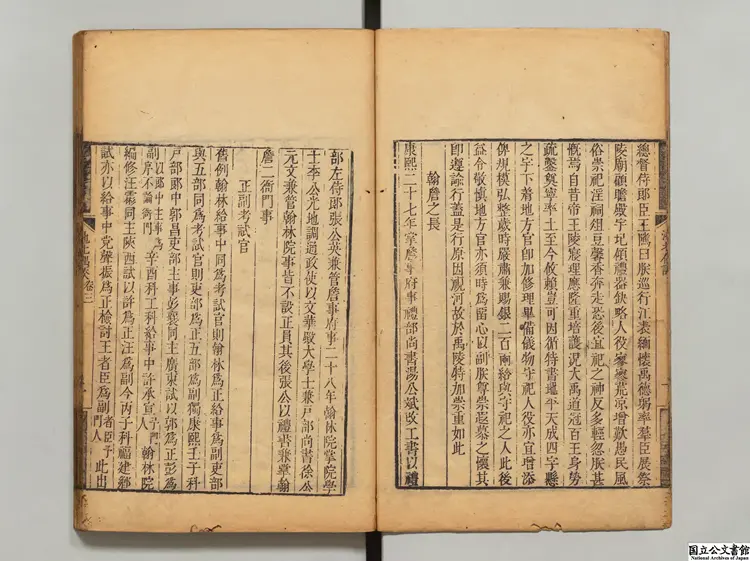 總督侍郎臣王隲曰朕巡行江表緬懷禹德躬率羣臣展祭
陵廟顧瞻殿宇圮傾禮器缺略人役寥寥荒凉增歎愚民風
俗崇祀淫祠俎豆馨香奔走恐後宜祀之神反多輕忽朕甚
慨焉自昔帝王陵寢理應隆重培護況大禹道冠百王身勞
疏鑿奠寧率土至今攸賴豈可因循特書地平天成四字懸
之宇下着地方官即加修理畢備儀物守祀人役亦宜增添
俾規模弘整歲時嚴肅兼賜銀二百兩給與守祀之人此後
益令敬慎地方官亦須時為留心以副朕尊崇遐慕之懷其
即遵諭行蓋是行原因視河故於禹陵特加崇重如此
翰詹之長
康熙二十七年掌詹事府事禮部尚書湯公斌改工書以禮
部左侍郎張公英兼管詹事府事二十八年翰林院掌院學
士李公光地調通政使以文華殿大學士兼戶部尚書徐公
元文兼管翰林院事皆不設正員其後張公以禮書兼掌翰
詹二衙門事
正副考試官
舊例翰林給事中同為考試官則翰林為正給事為副吏部
與五部同為考試官則吏部為正五部為副獨康熙壬子科
戶部郎中郭昌吏部主事彭襲同主廣東試以郭為正彭為
副以郎中主事為序不論衙門辛酉科工科給事中許承宣予門人翰林院
編修汪霦同主陝西試以許為正汪為副今丙子科福建鄉
試亦以給事中党聲振為正檢討王者臣為副者臣予門人此出
池北偶談 卷三
国立公文書館
National Archives of Japan